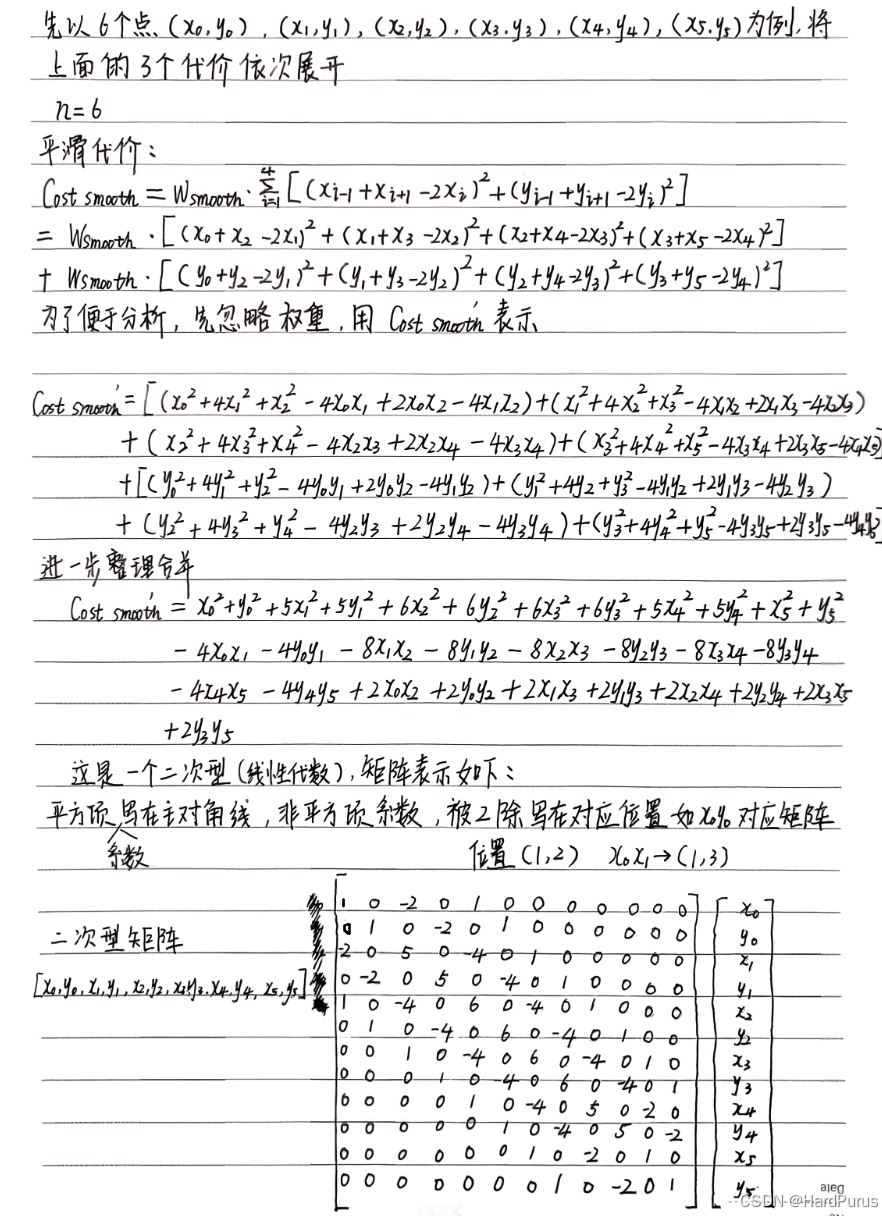 先以6个点(x₀,y₀),(x₁,y₁),(x₂,y₂),(x₃,y₃),(x₄,y₄),(x₅,y₅)为例,将
上面的3个代价依次展开
n=6
平滑代价:
Cost smooth = Wsmooth·∑ᵢ₌₁⁴[(xᵢ₋₁+xᵢ₊₁-2xᵢ)²+(yᵢ₋₁+yᵢ₊₁-2yᵢ)²]
= Wsmooth·[(x₀+x₂-2x₁)²+(x₁+x₃-2x₂)²+(x₂+x₄-2x₃)²+(x₃+x₅-2x₄)²]
+ Wsmooth·[(y₀+y₂-2y₁)²+(y₁+y₃-2y₂)²+(y₂+y₄-2y₃)²+(y₃+y₅-2y₄)²]
为了便于分析,先忽略权重,用 Cost smooth' 表示
Cost smooth' = [(x₀²+4x₁²+x₂²-4x₀x₁+2x₀x₂-4x₁x₂)+(x₁²+4x₂²+x₃²-4x₁x₂+2x₁x₃-4x₂x₃)
+(x₂²+4x₃²+x₄²-4x₂x₃+2x₂x₄-4x₃x₄)+(x₃²+4x₄²+x₅²-4x₃x₄+2x₃x₅-4x₄x₅)]
+[(y₀²+4y₁²+y₂²-4y₀y₁+2y₀y₂-4y₁y₂)+(y₁²+4y₂+y₃²-4y₁y₂+2y₁y₃-4y₂y₃)
+(y₂²+4y₃²+y₄²-4y₂y₃+2y₂y₄-4y₃y₄)+(y₃²+4y₄²+y₅²-4y₃y₅+2y₃y₅-4y₄y₅)]
进一步整理合并
Cost smooth' = x₀²+y₀²+5x₁²+5y₁²+6x₂²+6y₂²+6x₃²+6y₃²+5x₄²+5y₄²+x₅²+y₅²
-4x₀x₁-4y₀y₁-8x₁x₂-8y₁y₂-8x₂x₃-8y₂y₃-8x₃x₄-8y₃y₄
-4x₄x₅-4y₄y₅+2x₀x₂+2y₀y₂+2x₁x₃+2y₁y₃+2x₂x₄+2y₂y₄+2x₃x₅
+2y₃y₅
这是一个二次型(线性代数),矩阵表示如下:
平方项写在主对角线,非平方项系数,被2除写在对应位置如x₀y₀对应矩阵
系数 位置(1,2) x₀x₁→(1,3)
二次型矩阵
[x₀,y₀,x₁,y₁,x₂,y₂,x₃y₃,x₄,y₄,x₅,y₅]
1 0 -2 0 1 0 0 0 0 0 0 0 x₀
0 1 0 -2 0 1 0 0 0 0 0 0 y₀
-2 0 5 0 -4 0 1 0 0 0 0 0 x₁
0 -2 0 5 0 -4 0 1 0 0 0 0 y₁
1 0 -4 0 6 0 -4 0 1 0 0 0 x₂
0 1 0 -4 0 6 0 -4 0 1 0 0 y₂
0 0 1 0 -4 0 6 0 -4 0 1 0 x₃
0 0 0 1 0 -4 0 6 0 -4 0 1 y₃
0 0 0 0 1 0 -4 0 5 0 -2 0 x₄
0 0 0 0 0 1 0 -4 0 5 0 -2 y₄
0 0 0 0 0 0 1 0 -2 0 1 0 x₅
0 0 0 0 0 0 0 1 0 -2 0 1 y₅
Date
CSDN @HardPurus